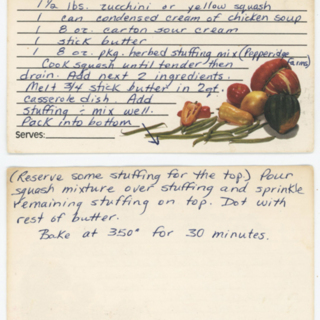 1½ lbs. zucchini or yellow squash
1 can condensed cream of chicken soup
1 8 oz. carton sour cream
1 stick butter
1 8 oz. pkg. herbed stuffing mix (Pepperidge
Farms)
Cook squash until tender then
drain. Add next 2 ingredients.
Melt 3/4 stick butter in 2 qt.
casserole dish. Add
stuffing - mix well.
Pack into bottom
Serves:
(Reserve some stuffing for the top.) Pour
squash mixture over stuffing and sprinkle
remaining stuffing on top. Dot with
rest of butter.
Bake at 350° for 30 minutes.